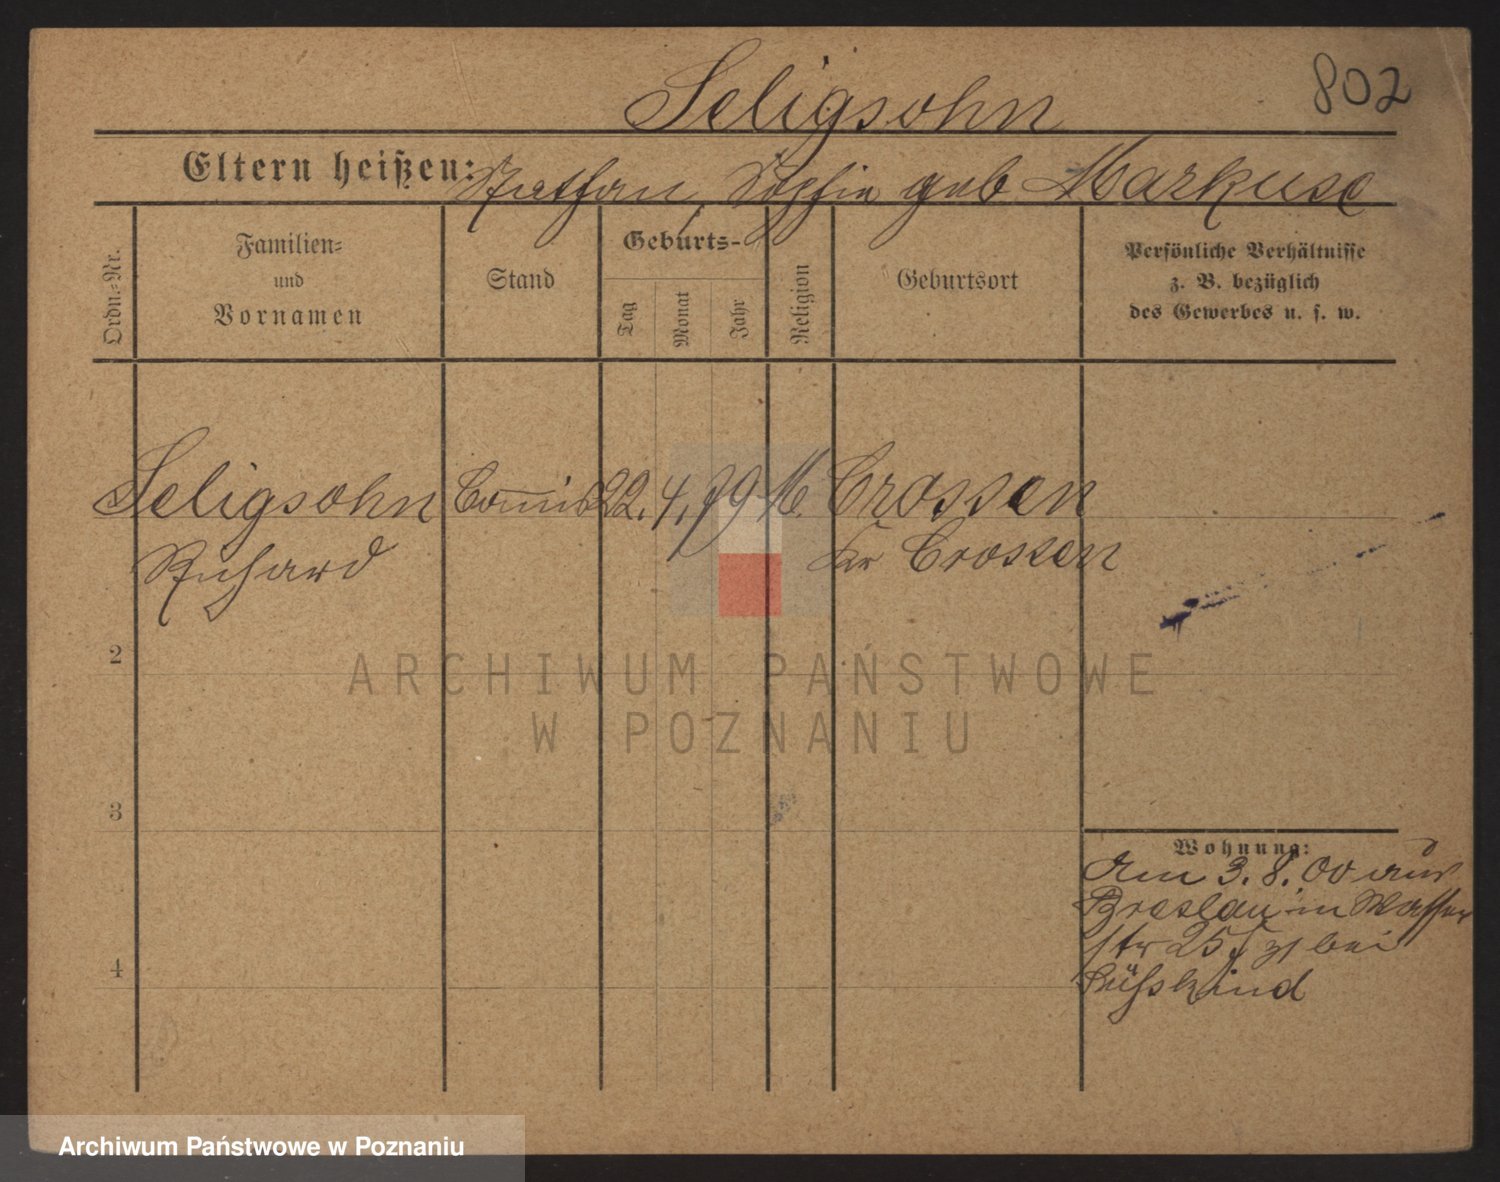 802
Seligsohn
Eltern heißen: Nathan, Sophie geb Markuse
Ordn.-Nr.
Familien-
und
Vornamen
Stand
Geburts-
Tag
Monat
Jahr
Religion
Geburtsort
Persönliche Verhältnisse
z. B. bezüglich
des Gewerbes u. s. w.
Seligsohn Commis 22. 4. 79 M. Crossen
Richard Kr Crossen
2
3
4
Wohnung:
Am 3. 8. 00 aus
Breslau in Wasser
str 25 bei
Süßkind
ARCHIWUM PAŃSTWOWE
W POZNANIU
Archiwum Państwowe w Poznaniu